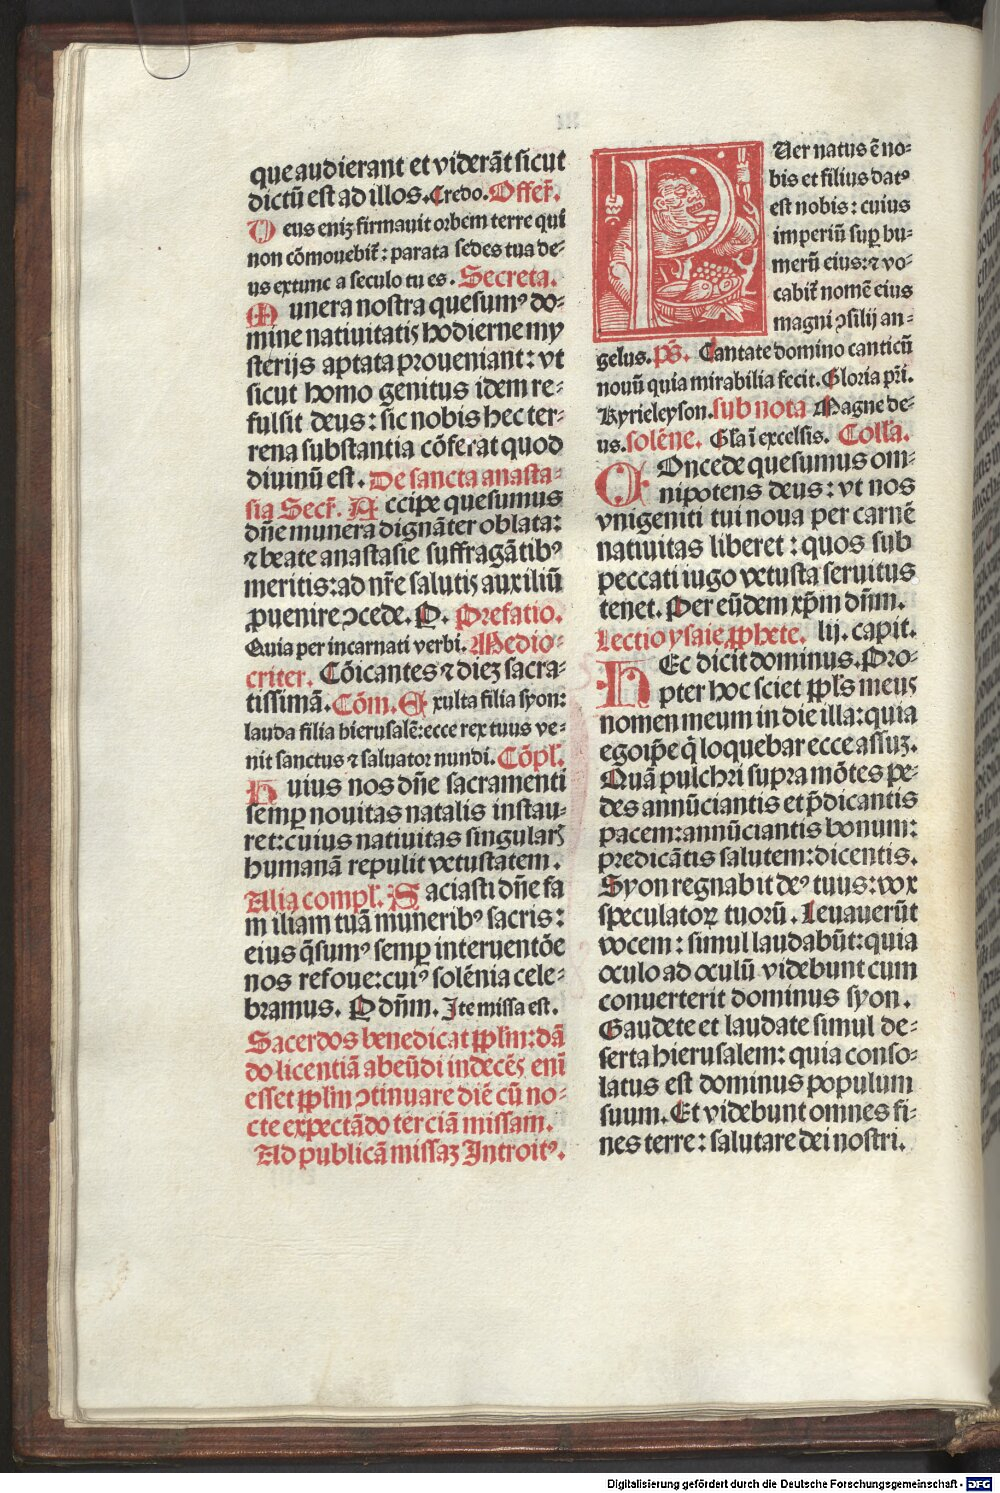 que audierant et viderāt sicut
dictū est ad illos. Credo. Offeř.
Deus eniʒ firmauit orbem terre qui
non cōmouebiť: parata sedes tua de-
us extunc a seculo tu es. Secreta.
Munera nostra quesumꝰ do-
mine natiuitatis hodierne my
sterijs aptata proueniant: vt
sicut homo genitus idem re-
fulsit deus: sic nobis hec ter-
rena substantia cōferat quod
diuinū est. De sancta anasta-
sia Secř. Accipe quesumus
dn̄e munera dignāter oblata:
⁊ beate anastasie suffragātibꝰ
meritis: ad nr̄e salutis auxiliū
ꝓuenire ↄcede. P. Prefatio.
Quia per incarnati verbi. Medio-
criter. Cōicantes ⁊ dieʒ sacra-
tissimā. Cōm. Exulta filia syon:
lauda filia hierusalē: ecce rex tuus ve-
nit sanctus ⁊ saluator mundi. Cōpl.
Huius nos dn̄e sacramenti
semꝑ nouitas natalis instau-
ret: cuius natiuitas singularꝭ
humanā repulit vetustatem.
Alia compl. Saciasti dn̄e fa
miliam tuā muneribꝰ sacris:
eius q̄sumꝰ semꝑ interuentōe
nos refoue: cuiꝰ solēnia cele-
bramus. P dn̄m. Ite missa est.
Sacerdos benedicat pp̄lm: dā
do licentiā abeūdi indecēs eni
esset pp̄lm ↄtinuare diē cū no-
cte expectādo terciā missam.
Ad publicā missaʒ Introitꝰ.
PUer natus ē no-
bis et filius datꝰ
est nobis: cuius
imperiū suꝑ hu-
merū eius: ⁊ vo-
cabiť nomē eius
magni ↄsilij an-
gelus. pš. Cantate domino canticū
nouū quia mirabilia fecit. Gloria pr̄i.
Kyrieleyson. sub nota Magne de-
us. solēne. Gl̄a ī excelsis. Coll̄a.
COncede quesumus om-
nipotens deus: vt nos
vnigeniti tui noua per carnē
natiuitas liberet: quos sub
peccati iugo vetusta seruitus
tenet. Per eūdem xp̄m dn̄m.
Lectio ysaie ꝓphete. lij. capit.
HEc dicit dominus. Pro-
pter hoc sciet pp̄ls meus
nomen meum in die illa: quia
ego ip̄e q̄ loquebar ecce assuʒ.
Quā pulchri supra mōtes pe-
des annūciantis et p̄dicantis
pacem: annūciantis bonum:
predicātis salutem: dicentis.
Syon regnabit deꝰ tuus: vox
speculatoꝝ tuorū. Leuauerūt
vocem: simul laudabūt: quia
oculo ad oculū videbunt cum
conuerterit dominus syon.
Gaudete et laudate simul de-
serta hierusalem: quia conso-
latus est dominus populum
suum. Et videbunt omnes fi-
nes terre: salutare dei nostri.
Digitalisierung gefördert durch die Deutsche Forschungsgemeinschaft - DFG